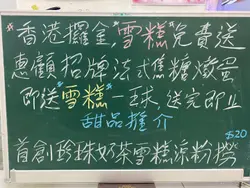 "香港攞金,雪糕"免費送
惠顧招牌法式焦糖燉蛋
即送"雪糕"一球,送完即止
甜品推介
$20
首創珍珠奶茶雪糕涼粉撈